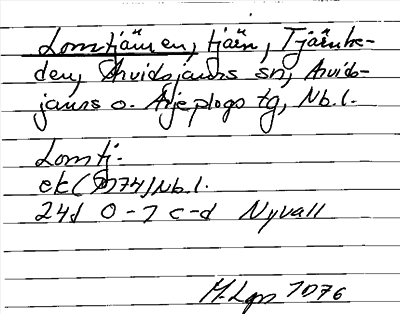 Lomtjärnen, tjärn, Tjärnhe-
den, Arvidsjaurs sn, Arvids-
jaurs o. Arjeplogs tg, Nb.l.
Lomtj.
ek (1974) Nb.l.
24J 0-1 c-d Nyvall
M. Lgn 1976